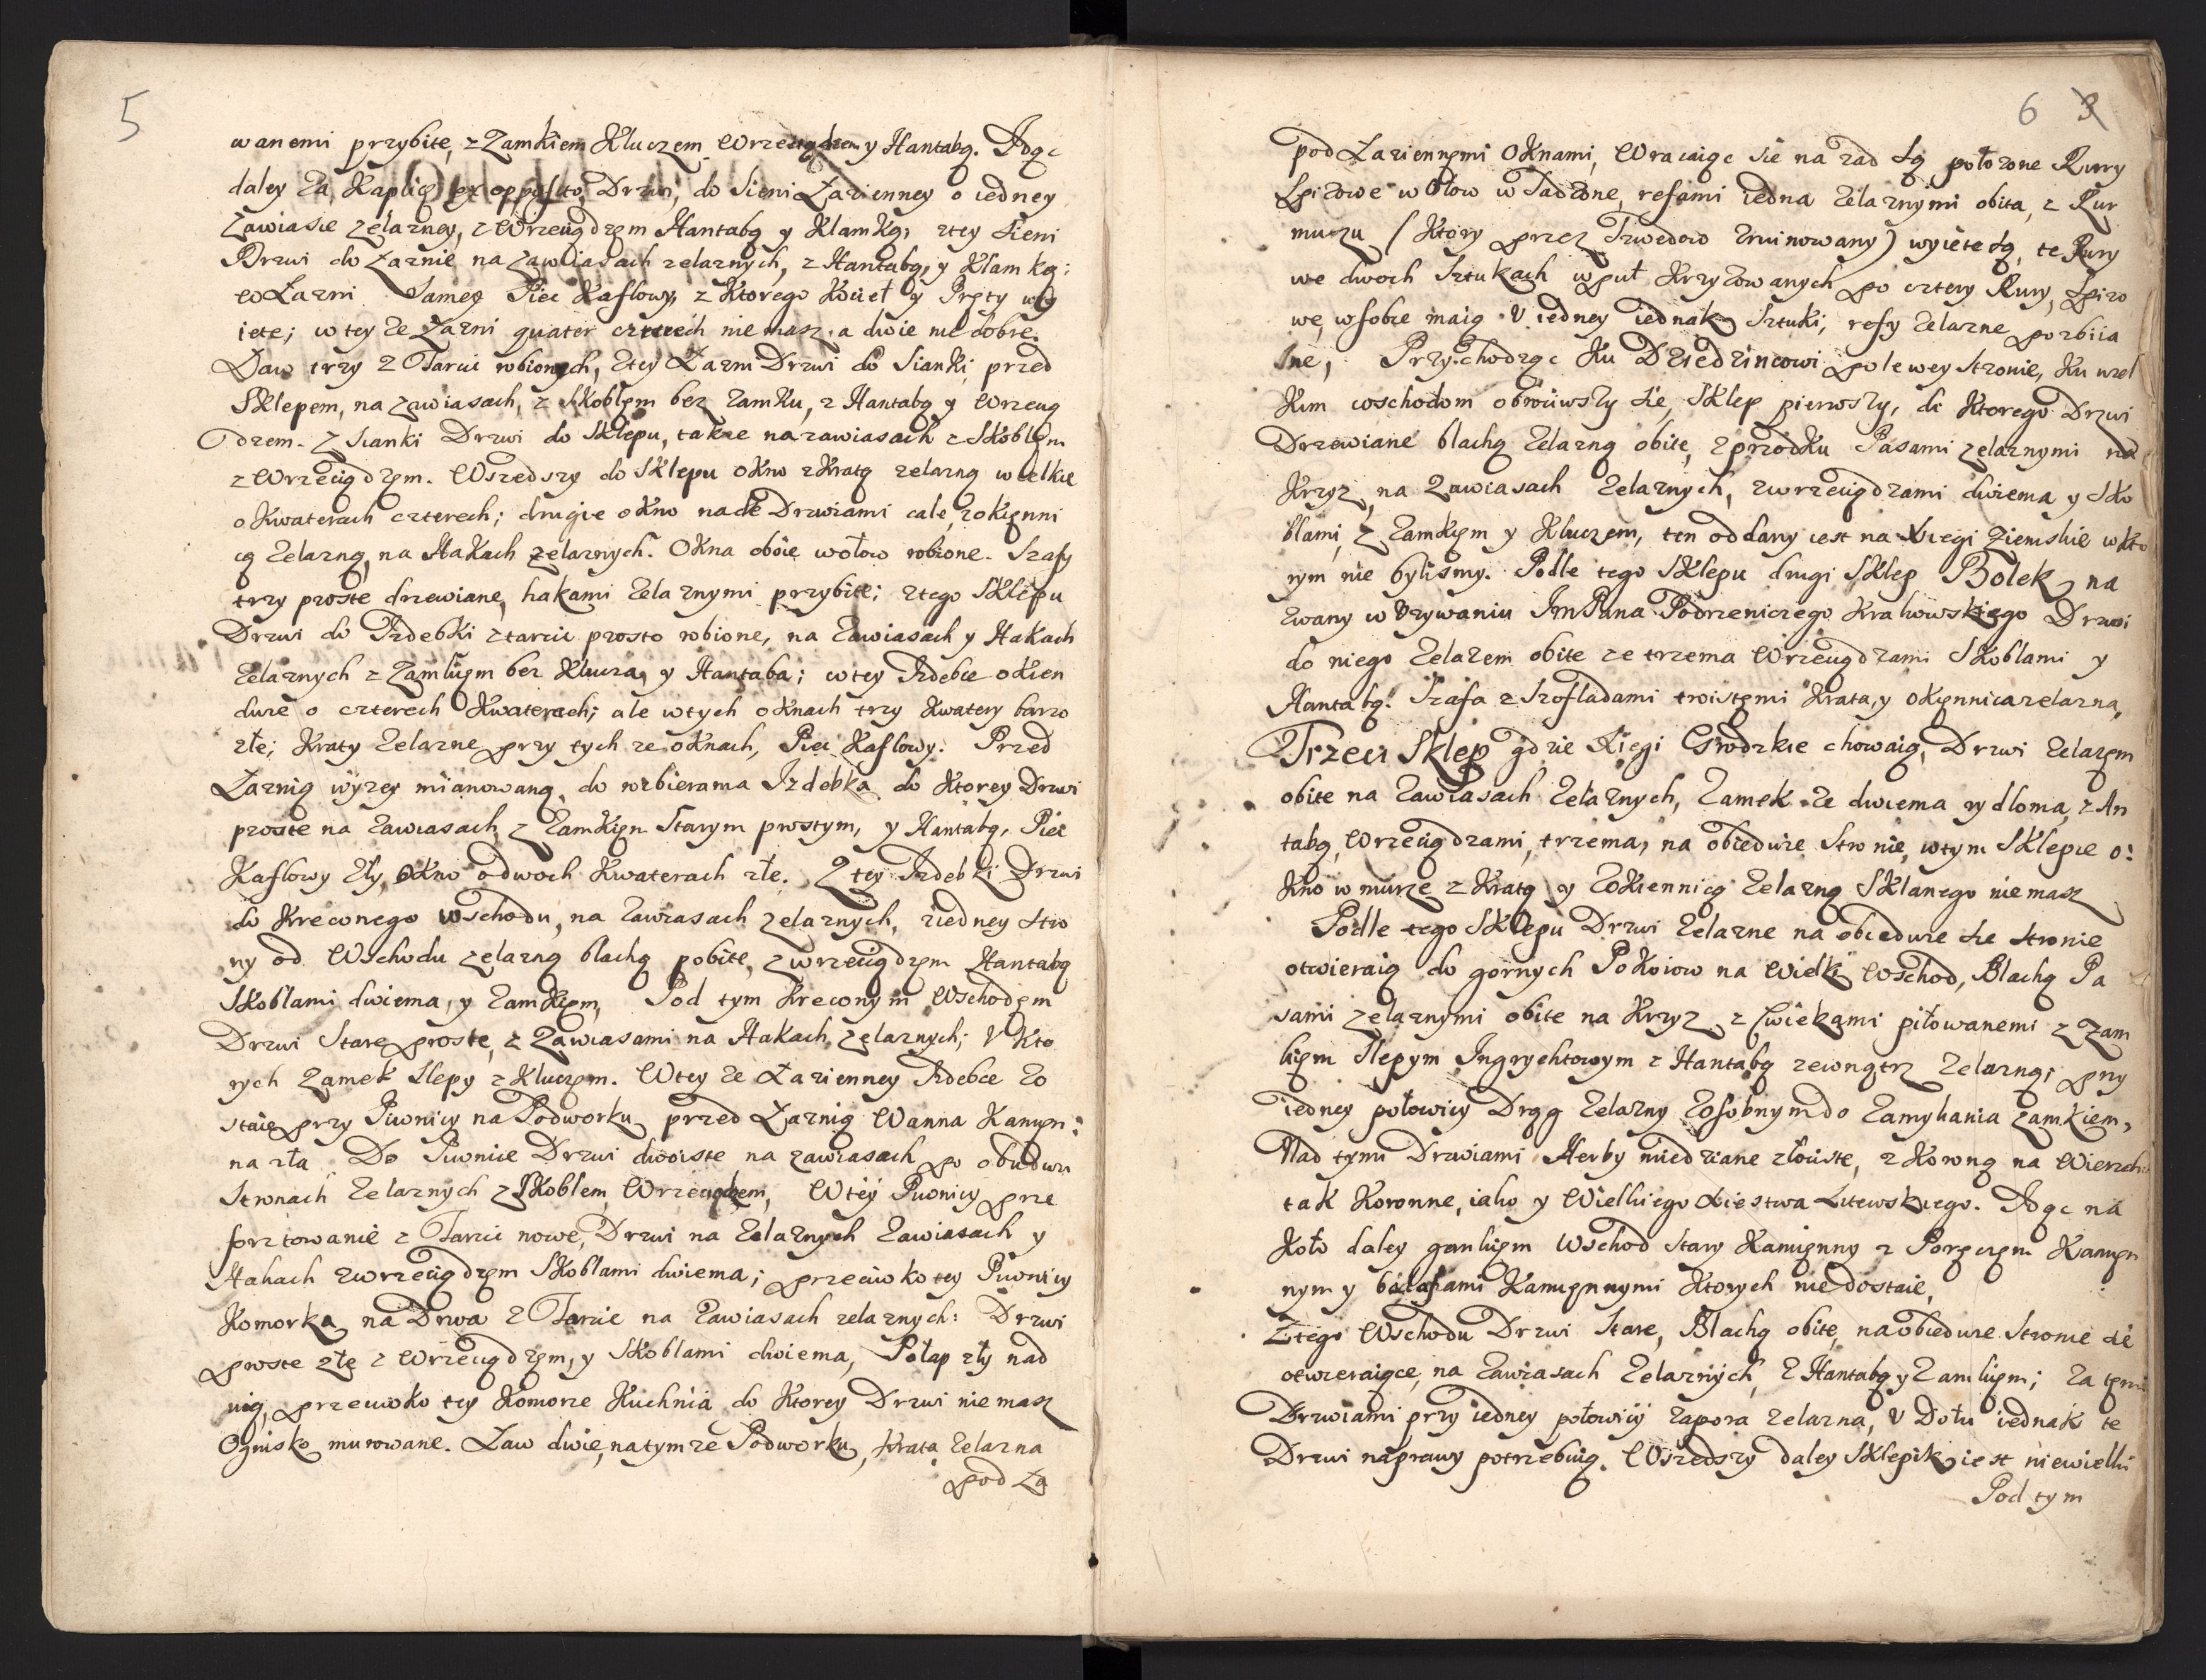 5
wanemi przybite, z Zamkiem Kluczem Wrzeciądzem y Hantabą. Idąc
daley za Kaplicą ex opposito Drzwi, do Sieni Łazienney o iedney
Zawiasie żelazney, z Wrzeciądzem Hantabą y Klamką, z tey sieni
Drzwi do Łaznie na Zawiasach zelaznych, z Hantabą, y Klamką;
w Łazni Samey Piec Kaflowy, z Ktorego Kocieł y Pręty wy
ięte; w tey ze Łazni quater czterech niemasz, a dwie nie dobre.
Ław trzy z Tarcic robionych, z tey Łazni Drzwi do Sianki przed
Sklepem, na zawiasach, z Skoblem bez Zamku, z Hantabą y Wrzecią
dzem. Z Sianki Drzwi do Sklepu, także na zawiasach z Skoblem
z Wrzeciądzem. Wszedszy do Sklepu okno z Kratą zelazną wielkie
o Kwaterach czterech; drugie okno nade Drzwiami całe, z okienni
cą żelazną, na Hakach żelaznych. Okna oboie wołow robione. Szafy
trzy proste drzewiane, hakami żelaznymi przybite; z tego Sklepu
Drzwi do Izdebki z tarcic prosto robione, na Zawiasach y Hakach
Zelaznych z Zamkiem bez Klucza, y Hantaba; w tey Izdebce okien
dwie o czterech Kwaterach; ale w tych oknach trzy Kwatery barzo
złe; Kraty żelazne przy tych ze oknach, Piec Kaflowy. Przed
Łaznią wyżey mianowaną, do rozbierania Izdebka do Ktorey Drzwi
proste na Zawiasach z Zamkiem Starym prostym, y Hantabą, Piec
Kaflowy zły, Okno o dwoch Kwaterach złe. Z tey Izdebki Drzwi
do Kręconego Wschodu, na Zawiasach żelaznych, z iedney stro
ny od Wschodu żelazną blachą pobite, z wrzeciądzem Hantabą
Skoblami dwiema, y Zamkiem, Pod tym Kręconym Wschodem
Drzwi Stare proste, z Zawiasami na Hakach żelaznych; v Kto
rych Zamek Slepy z Kluczem. W tey ze Łazienney Izdebce zo
staie przy Piwnicy na Podworku przed Łaznią Wanna Kamien:
na zła Do Piwnice Drzwi dwoiste na zawiasach po obudwu
Stronach żelaznych z Skoblem, Wrzeciądzem, W tey Piwnicy prze
forztowanie z Tarcic nowe, Drzwi na żelaznych Zawiasach y
Hakach z wrzeciądzem Skoblami dwiema; przeciwko tey Piwnicy
Komorka na Drwa z Tarcic na Zawiasach zelaznych: Drzwi
proste złe z Wrzeciądzem, y Skoblami dwiema, Połap zły nad
nią, przeciwko tey Komorze Kuchnia do Ktorey Drzwi niemasz
Ognisko murowane. Ław dwie, na tymze Podworku, Krata żelazna
pod Ła
6 3
pod Łaziennemi Oknami, Wracaiąc sie na zad są położone Rury
Spiżowe w Ołow wsadzone, refami iedna żelaznymi obita, z Rur
muszu (Ktory przez Szwedow zruinowany) wyięte są, te Rury
we dwoch Sztukach wpuł Krzyżowanych po cztery Rury, Spiżo
we, w sobie maią v iedney iednak Sztuki, refy żelazne pozbiia
ne, Przychodząc Ku Dziedzincowi po lewey Stronie, Ku wiel
Kim wschodom obrociwszy sie, Sklep pierwszy, do Ktorego Drzwi
Drzewiane blachą żelazną obite, z przodku Pasami żelaznymi na
Krzyz, na Zawiasach żelaznych, z wrzeciądzami dwiema y Sko
blami, z Zamkiem y Kluczem, ten oddany iest na Xięgi Ziemskie w kto
rym nie byliśmy. Podle tego Sklepu drugi Sklep Bolek na
zwany w Vżywaniu Im Pana Podrzeniczego Krakowskiego Drzwi
do niego żelazem obite ze trzema Wrzeciądzami Skoblami y
Hantabą. Szafa z Szofladami troistemi Krata, y okiennica zelazna,
Trzeci Sklep gdzie Xięgi Grodzkie chowaią, Drzwi żelazem
obite na Zawiasach żelaznych, Zamek ze dwiema rydloma, z An
tabą, Wrzeciądzami, trzema, na obiedwie Stronie, w tym Sklepie o:
Kno w murze z Kratą y z Okiennicą żelazną Sklanego niemasz
Podle tego Sklepu Drzwi żelazne na obiedwie sie stronie
otwieraią do gornych Pokoiow na Wielki Wschod, Blachą Pa
sami żelaznymi obite na Krzyz, z cwiekami piłowanemi z Zam
kiem Slepym Ingrychtowym z Hantabą zewnątrz żelazną; przy
iedney połowicy Drąg żelazny z osobnym do Zamykania Zamkiem,
Nad tymi Drzwiami Herby miedziane złociste, z Koroną na Wierzchu
tak Koronne, iako y Wielkiego Xięstwa Litewskiego. Idąc na
Koło daley gankiem Wschod stary Kamienny z Poręczem Kamien
nym y balasami Kamiennymi Ktorych niedostaie,
Z tego Wschodu Drzwi Stare, Blachą obite, na obiedwie Stronie sie
otwieraiące, na Zawiasach żelaznych, z Hantabą y Zamkiem; Za tymi
Drzwiami przy iedney połowicy Zapora żelazna, v Dołu iednak te
Drzwi naprawy potrzebuią. Wszedszy daley Sklepik iest niewielki
Pod tym